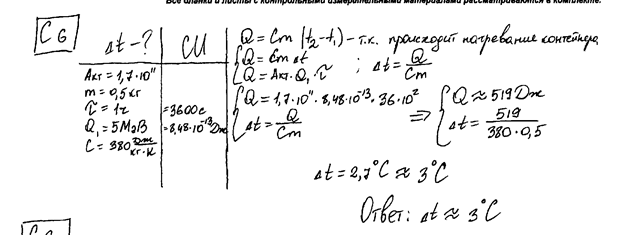 Все бланки и листы с контрольными измерительными материалами рассматриваются в комплекте.
C6
Δt-? | СИ
Aкт = 1,7·10¹¹
m = 0,5 кг
τ = 1ч =3600с
Q₁ = 5МэВ =8,48·10⁻¹³Дж
C = 380 Дж/кг·К
Q = Cm (t₂-t₁) - т.к. происходит нагревание контейнера
{Q = Cm Δt
{Q = Aкт·Q₁·τ ; Δt = Q/Cm
{Q = 1,7·10¹¹·8,48·10⁻¹³·36·10² ⇒ {Q ≈ 519 Дж
{Δt = Q/Cm {Δt = 519/380·0,5
Δt = 2,7°C ≈ 3°C
Ответ: Δt ≈ 3°C